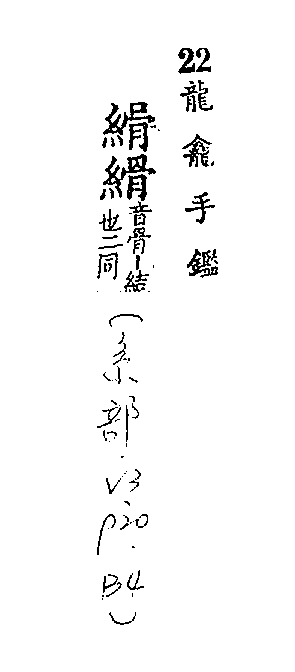 22龍龕手鑑
絹縎音骨丨結
也二同
(糸部.V3
P20.
B4)